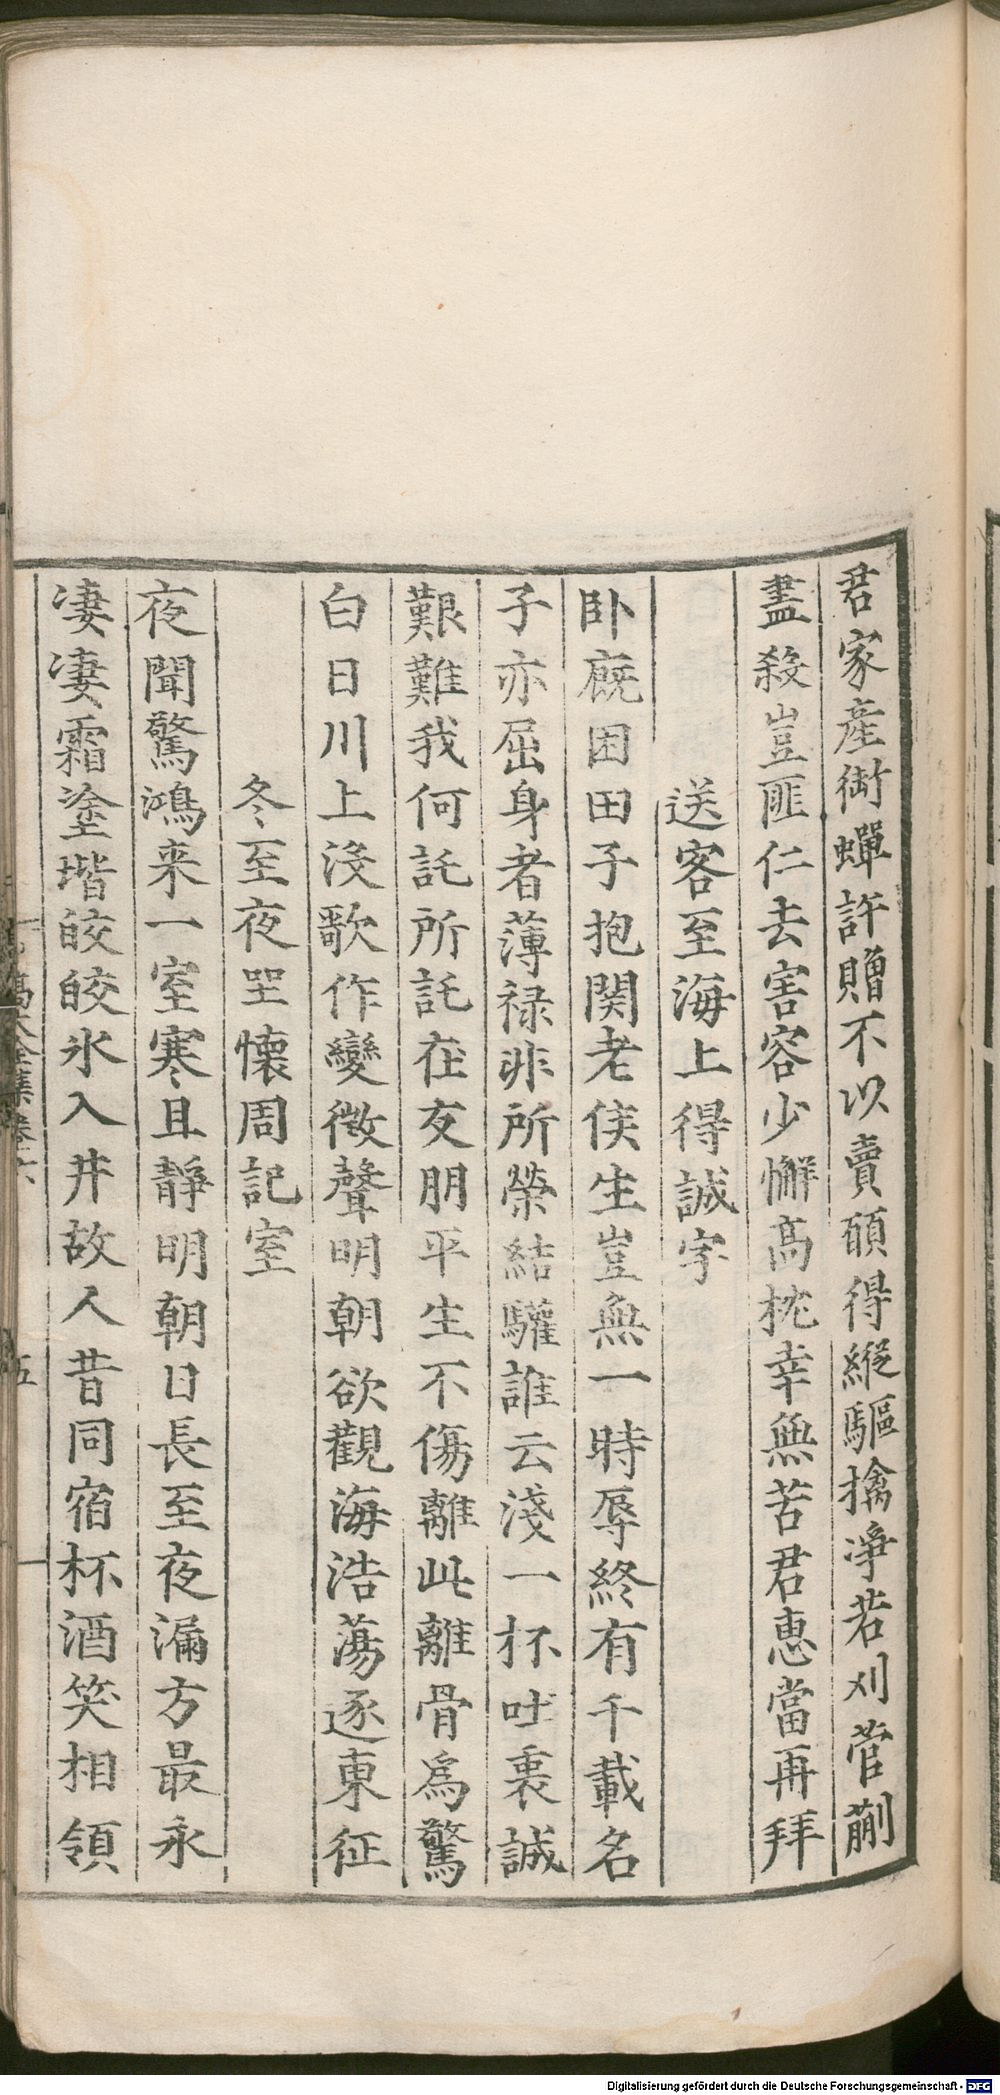 君家産衘蟬許贈不以賣願得縱驅擒凈若刈菅蒯
盡殺豈匪仁去害容少懈高枕幸無苦君惠當再拜
送客至海上得誠字
卧廐困田子抱関老侯生豈無一時辱終有千載名
子亦屈身者薄禄非所榮結驩誰云淺一杯吐裏誠
艱難我何託所託在友朋平生不傷離此離骨爲驚
白日川上沒歌作變徴聲明朝欲觀海浩蕩逐東征
冬至夜坐懐周記室
夜聞驚鴻来一室寒且靜明朝日長至夜漏方最永
淒淒霜塗堦皎皎氷入井故人昔同宿杯酒笑相領
高太全集卷六
五
Digitalisierung gefördert durch die Deutsche Forschungsgemeinschaft - DFG